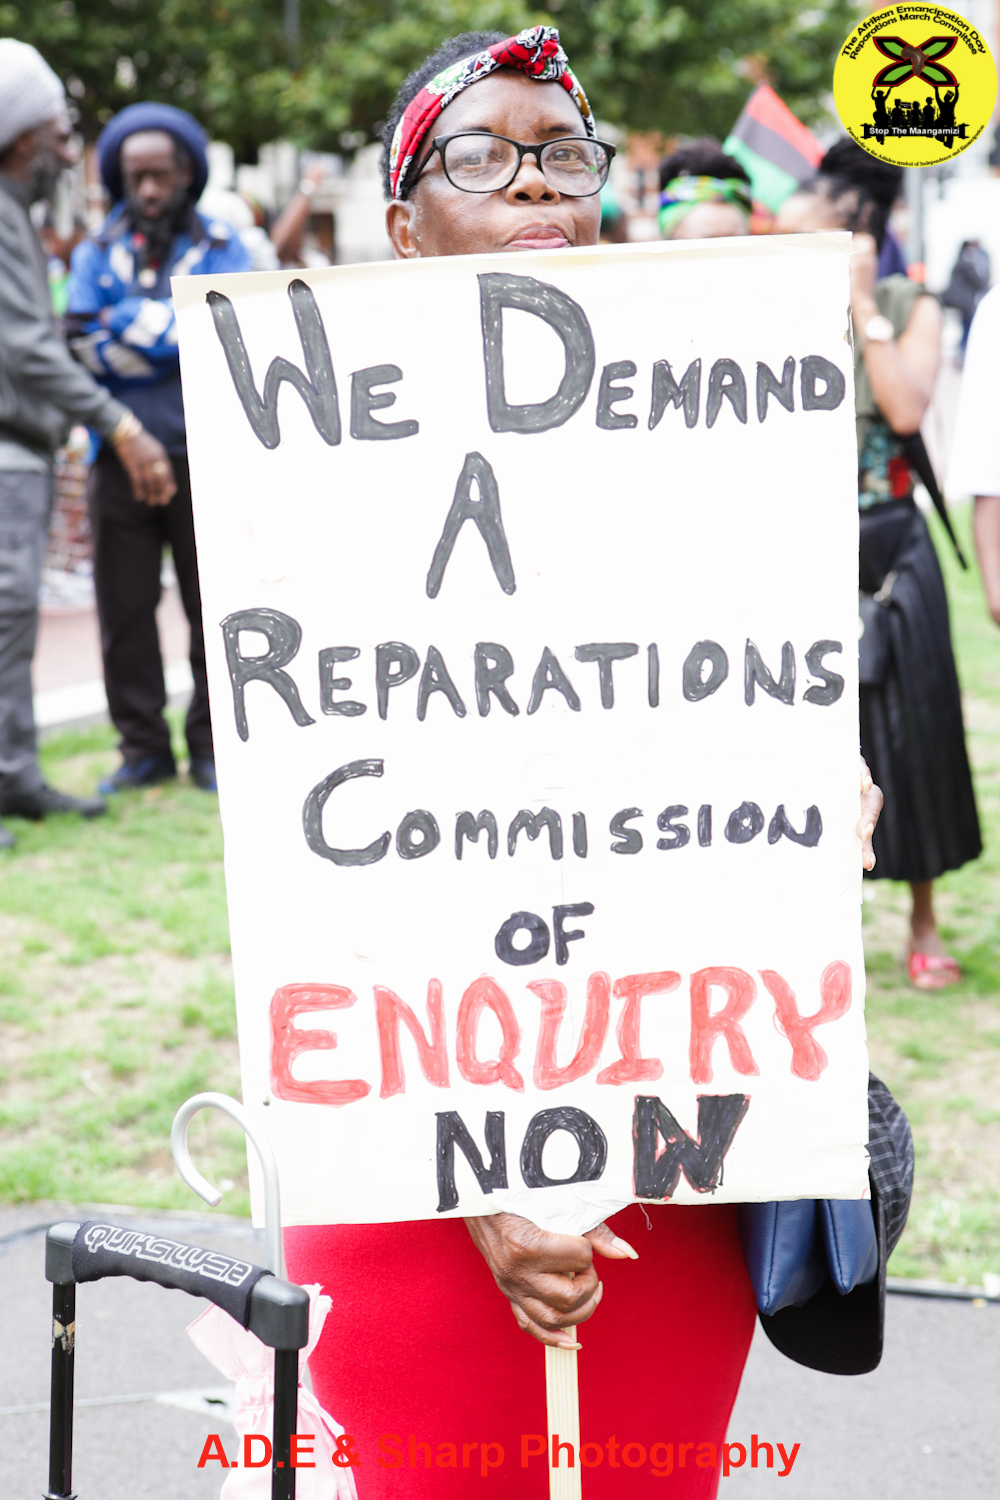 The Afrikan Emancipation Day
Reparations March Committee
Stop The Maangamizi
WE DEMAND
A
REPARATIONS
COMMISSION
OF
ENQUIRY
NOW
QUIKSILVER
A.D.E & Sharp Photography